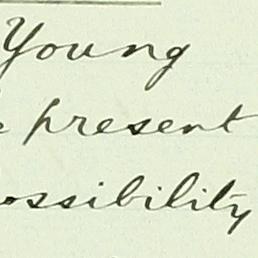 Young
present
ossibility